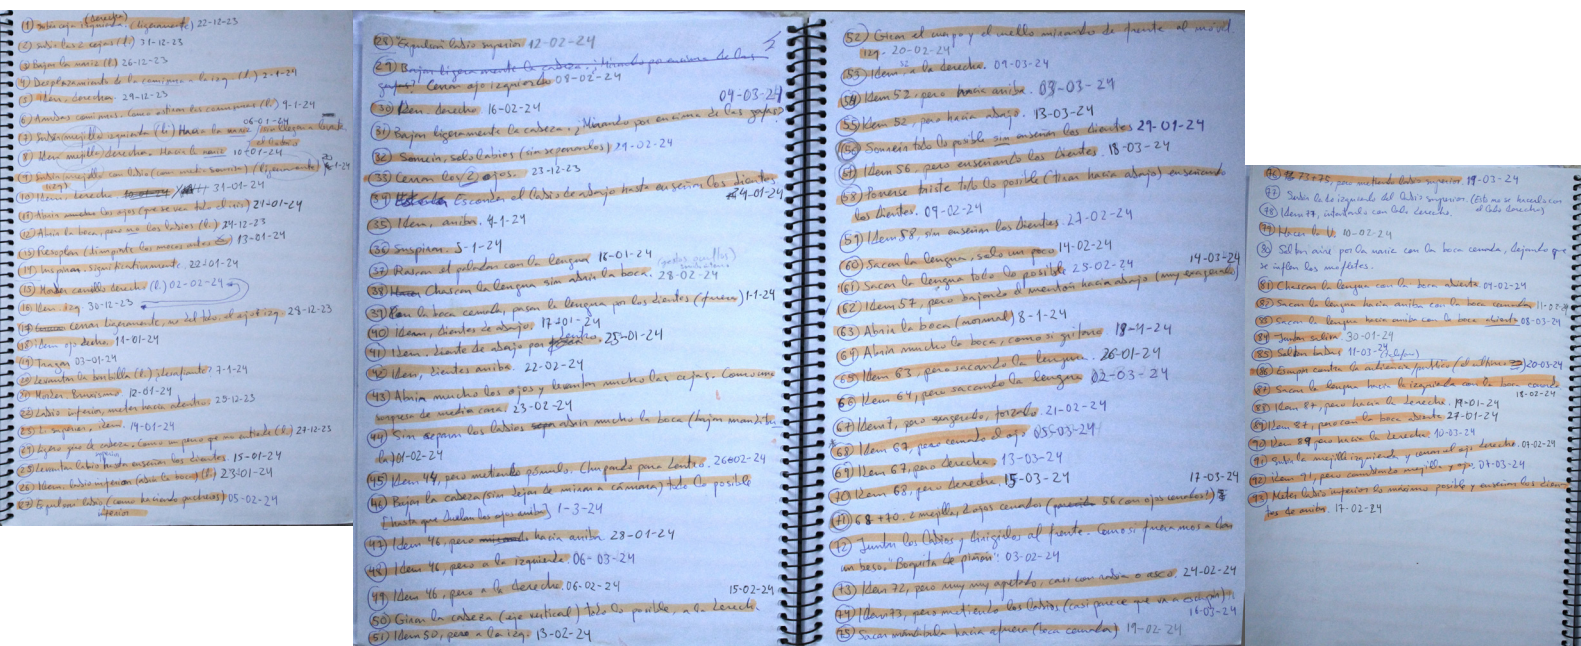 (derecha)
① Subir ceja izquierda (ligeramente) 22-12-23
② Subir las 2 cejas (l.) 31-12-23
③ Bajar la nariz (l.) 26-12-23
④ Desplazamiento de la comisura a la izq (l.) 2-1-24
⑤ Idem, derecha. 29-12-23
⑥ Ambas comisuras. Como estirar las comisuras (l.) 9-1-24
06-01-24
⑦ Subir mejilla izquierda (l.) Hacia la nariz
⑧ Idem mejilla derecha. Hacia la nariz 10-01-24
⑨ Subir mejilla con labio (con media sonrisa) (ligeramente) 1-24
⑩ Idem, derecha 31-01-24
⑪ Abrir mucho los ojos (que se vea todo el iris) 21-01-24
⑫ Abrir la boca, pero no los labios (l.) 24-12-23
⑬ Resoplar 13-01-24
⑭ Inspirar, significativamente. 22-01-24
⑮ Morder carrillo derecho (l.) 02-02-24
⑯ Idem izq 30-12-23
⑰ Cerrar ligeramente, no del todo, el ojo izq. 28-12-23
⑱ Idem ojo decho. 11-01-24
⑲ Tragar 03-01-24
⑳ Levantar la barbilla (l.) 7-1-24
㉑ Morder 12-01-24
㉒ Labio inferior, meter hacia adentro. 25-12-23
㉓ L. superior, idem. 19-01-24
㉔ Ligero giro de cabeza, como un perro que no entiende (l.) 27-12-23
㉕ Levantar labio hasta enseñar los dientes 15-01-24
㉖ Idem, labio inferior (abre la boca) (l.) 23-01-24
㉗ Expulsar labio (como haciendo pucheros) 05-02-24
inferior
㉘ Expulsar labio superior 12-02-24
2
㉙ Bajar ligeramente la cabeza. ¿Mirando por encima de las
gafas? Cerrar ojo izquierdo 08-02-24
㉚ Idem. derecho. 16-02-24
04-03-24
㉛ Bajar ligeramente la cabeza. ¿Mirando por encima de las gafas?
㉜ Sonreír, solo labios (sin separarlos) 21-02-24
㉝ Cerrar los 2 ojos. 23-12-23
㉞ Esconder el labio de abajo hasta enseñar los dientes
24-01-24
㉟ Idem, arriba. 4-1-24
㊱ Suspirar. 5-1-24
㊲ Rascar el paladar con la lengua 16-01-24
㊳ Chascar la lengua sin abrir la boca. 28-02-24
㊴ Con la boca cerrada, pasar la lengua por los dientes (fuera) 1-1-24
㊵ Idem, dientes de abajo. 17-01-24
㊶ Idem, diente de abajo por dentro. 25-01-24
㊷ Idem, dientes arriba. 22-02-24
㊸ Abrir mucho los ojos y levantar mucho las cejas. Como una
sorpresa de media cara. 23-02-24
㊹ Sin separar los labios abrir mucho la boca (bajar mandíbu
la) 01-02-24
㊺ Idem 44, pero metiendo pómulo. Chupando para dentro. 26-02-24
㊻ Bajar la cabeza (sin dejar de mirar a cámara) todo lo posible
[hasta que duelan los ojos arriba] 1-3-24
㊼ Idem 46, pero hacia arriba. 28-01-24
㊽ Idem 46, pero a la izquierda. 06-03-24
㊾ Idem 46, pero a la derecha. 06-02-24
15-02-24
㊿ Girar la cabeza (eje vertical) todo lo posible, a la derecha
(51) Idem 50, pero a la izq. 13-02-24
(52) Girar el cuerpo y el cuello mirando de frente al móvil
izq. 20-02-24
(53) Idem 52, a la derecha. 09-03-24
(54) Idem 52, pero hacia arriba. 03-03-24
(55) Idem 52, pero hacia abajo. 13-03-24
(56) Sonreír todo lo posible sin enseñar los dientes 29-01-24
(57) Idem 56, pero enseñando los dientes. 18-03-24
(58) Ponerse triste todo lo posible (tirar hacia abajo) enseñando
los dientes. 09-02-24
(59) Idem 58, sin enseñar los dientes. 27-02-24
(60) Sacar la lengua, solo un poco 14-02-24
(61) Sacar la lengua todo lo posible 25-02-24
14-03-24
(62) Idem 57, pero bajando el mentón hacia abajo (muy exagerado)
(63) Abrir la boca (normal) 8-1-24
(64) Abrir mucho la boca, como si gritara 18-1-24
(65) Idem 63, pero sacando la lengua. 26-01-24
(66) Idem 64, pero sacando la lengua 02-03-24
(67) Idem 7, pero exagerado, forzado. 21-02-24
(68) Idem 67, pero cerrando el ojo 05-03-24
(69) Idem 67, pero derecha. 13-03-24
(70) Idem 68, pero derecha. 15-03-24
17-03-24
(71) 68+70. 2 mejillas, 2 ojos cerrados (parecido 56 con ojos cerrados!)
(72) Juntar los labios y dirigirlos al frente. Como si fuéramos a dar
un beso. "Boquita de piñón". 03-02-24
(73) Idem 72, pero muy muy apretado, casi con rabia o asco. 24-02-24
(74) Idem 73, pero metiendo los labios (casi parece que va a escupir)
16-03-24
(75) Sacar mandíbula hacia afuera (boca cerrada) 19-02-24
(76) 73+75, pero metiendo labio superior. 19-03-24
(77) Subir lado izquierdo del labio superior. (Esto no se hacerlo con
el lado derecho)
(78) Idem 77, intentarlo con lado derecho.
(79) Hacer la U. 10-02-24
(80) Soltar aire por la nariz con la boca cerrada, dejando que
se inflen los mofletes.
(81) Chascar la lengua con la boca abierta. 04-02-24
(82) Sacar la lengua hacia arriba con la boca cerrada 11-02-24
(83) Sacar la lengua hacia arriba con la boca abierta 08-03-24
(84) 30-01-24
(85) 11-03-24
(86) 20-03-24
(87) Sacar la lengua hacia la izquierda con la boca cerrada
18-02-24
(88) Idem 87, pero hacia la derecha. 19-01-24
(89) Idem 87, pero con la boca abierta 27-01-24
(90) Idem 89 pero hacia la derecha. 10-03-24
(91) Subir la mejilla izquierda y cerrar el ojo derecho. 07-02-24
(92) Idem 91, pero cambiando mejilla y ojo. 07-03-24
(93) Meter labio inferior lo máximo posible y enseñar los dien
tes de arriba. 17-02-24